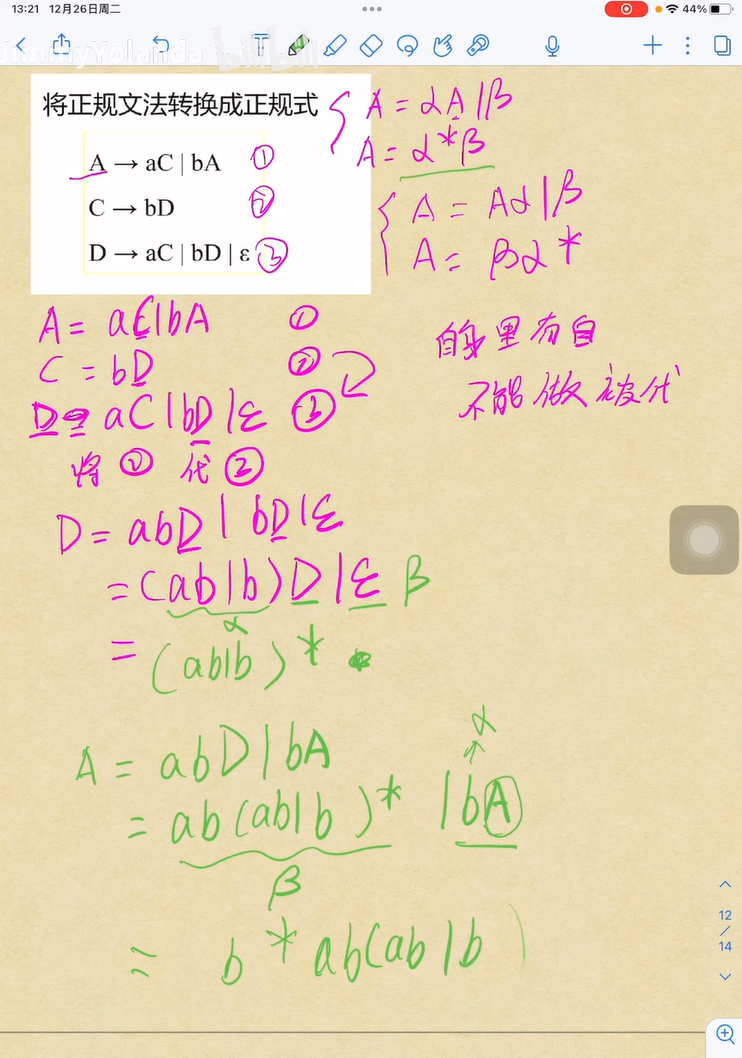 13:21 12月26日周二
44%
JimmyYolanda bilibili
将正规文法转换成正规式
A → aC | bA ①
C → bD ②
D → aC | bD | ε ③
A = αA|β
A = α*β
A = Aα|β
A = βα*
A = aC|bA ①
C = bD ②
D = aC|bD|ε ③
自身里有自
不能做被代
将 ② 代 ②
D = abD | bD|ε
= (ab|b) D |ε β
α
= (ab|b)*
A = abD|bA
α
= ab(ab|b)* |bA
β
= b*ab(ab|b)
12
/
14